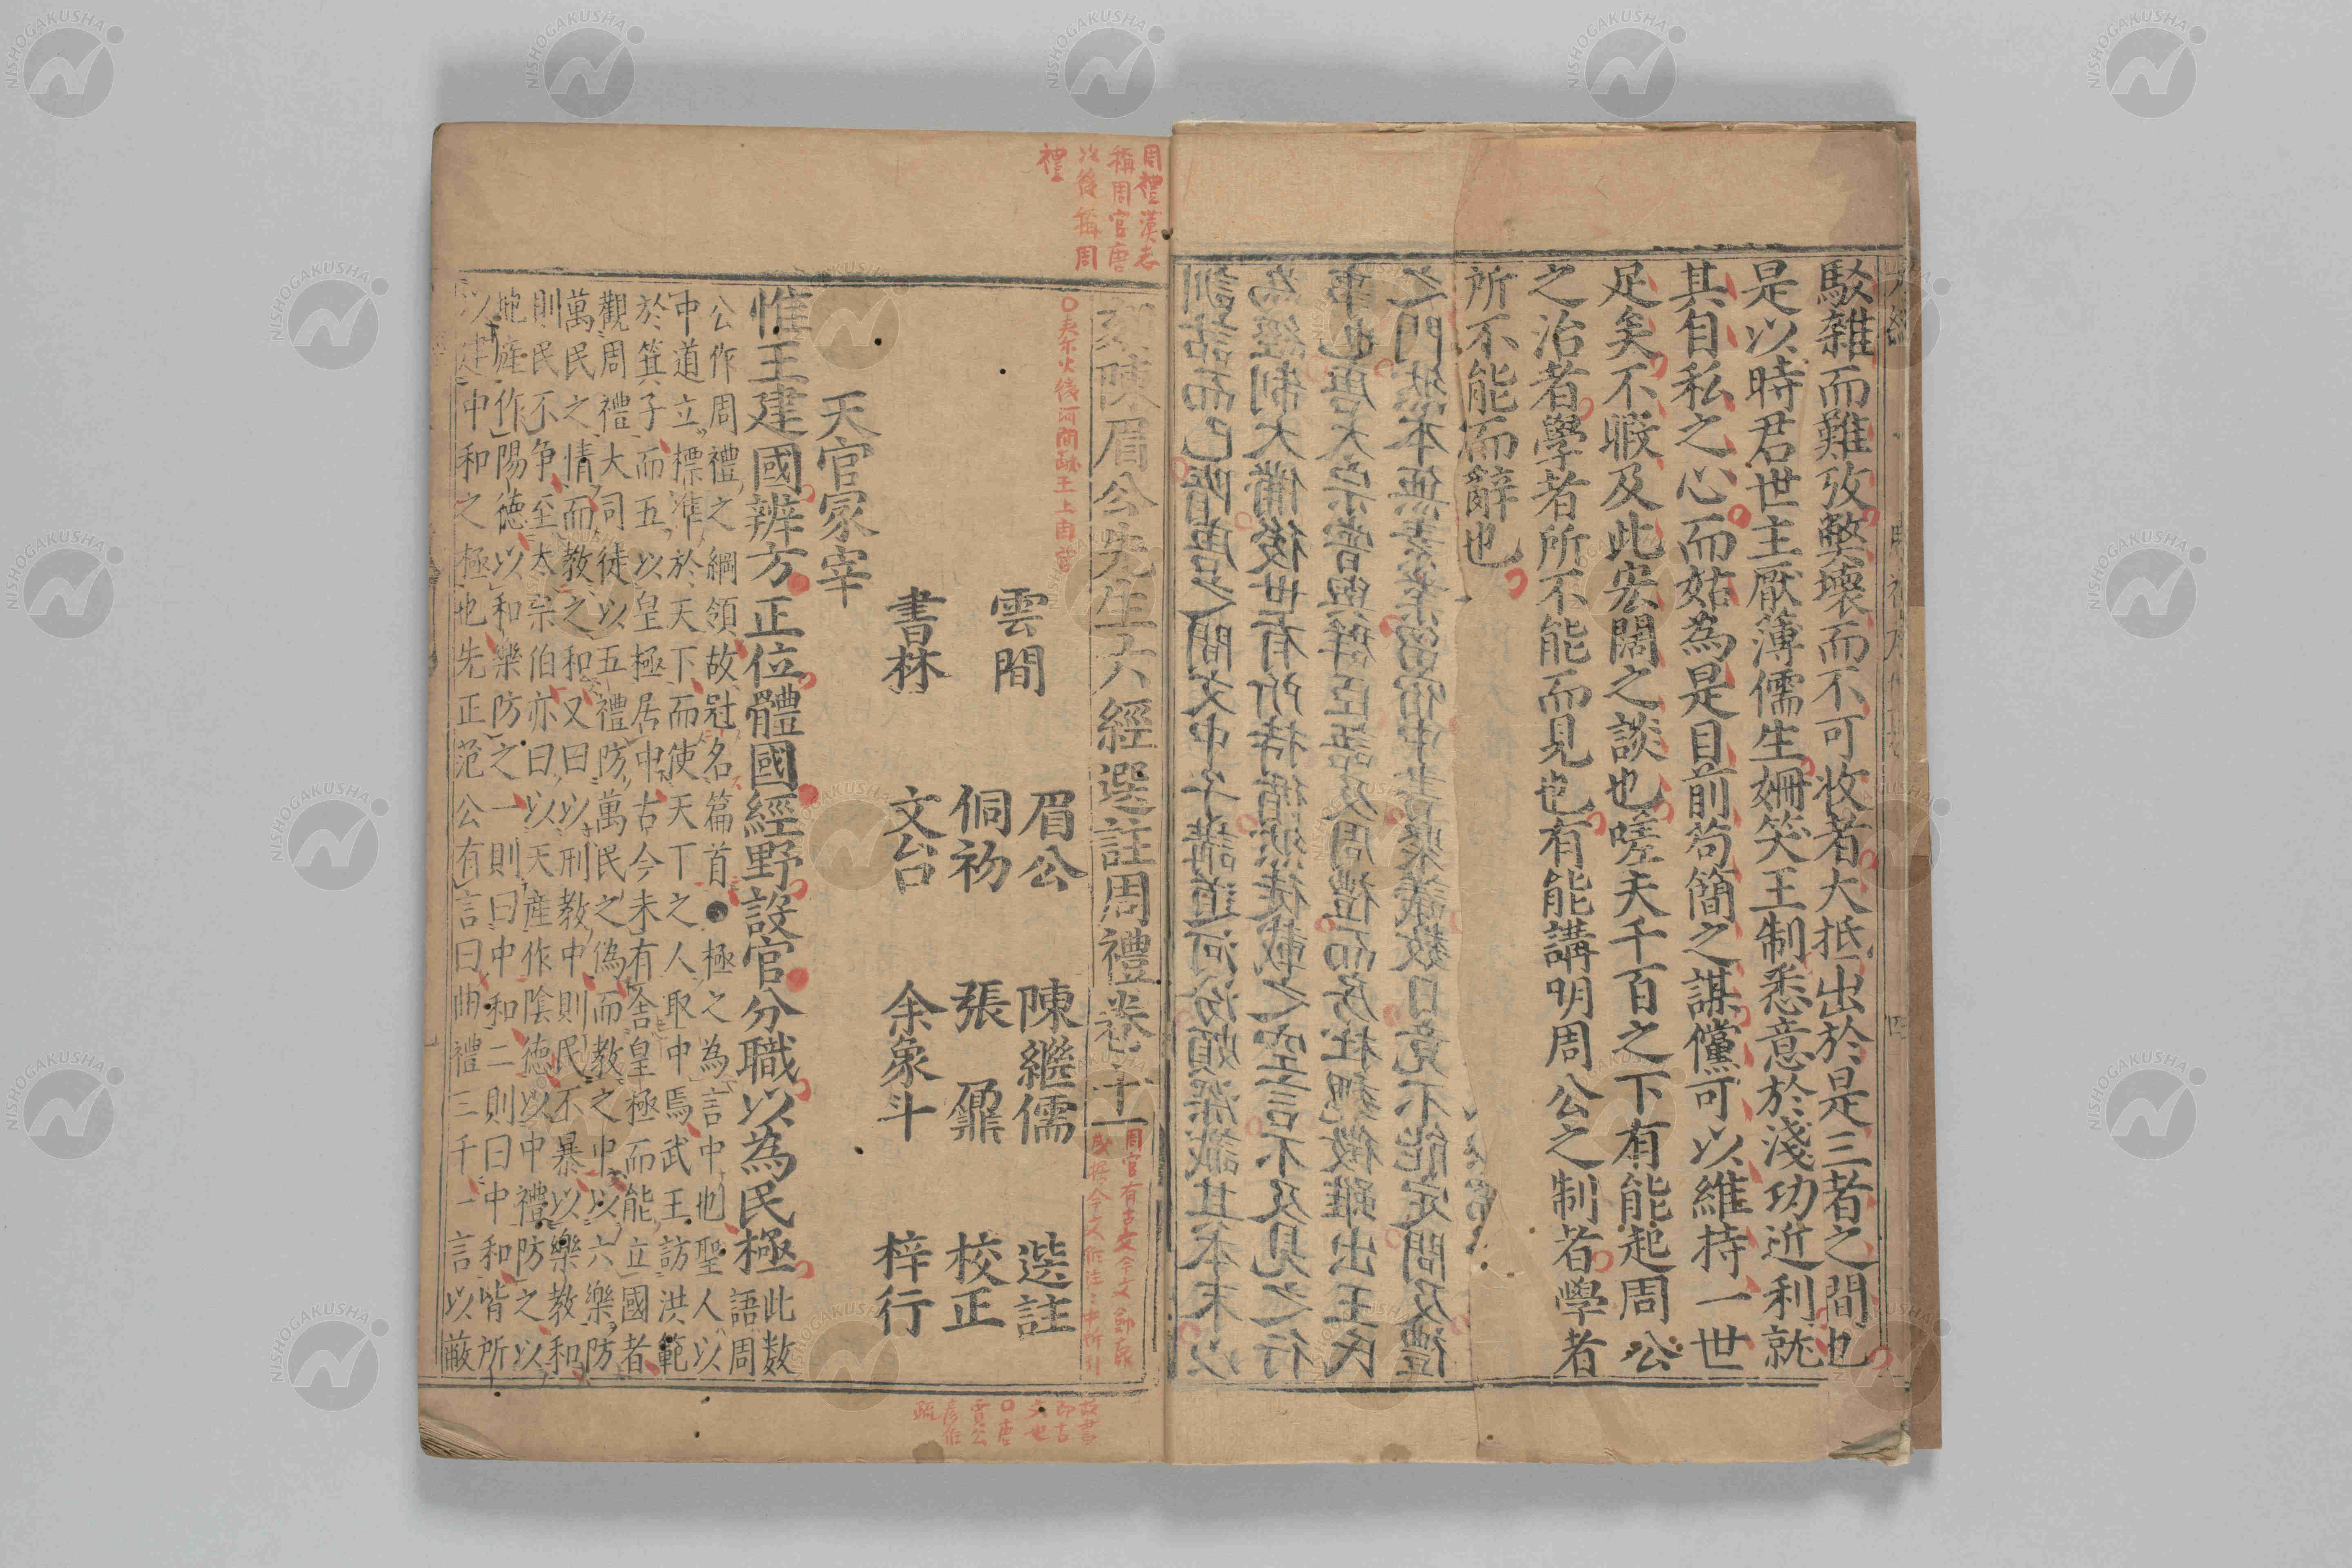 駁雜而難攷弊壞而不可收者大抵出於是三者之間也
是以時君世主厭薄儒生姍笑王制悉意於淺功近利就
其自私之心而姑為是目前苟簡之謀儻可以維持一世
足矣不暇及此宏闊之談也嗟夫千百之下有能起周公
之治者學者所不能而見也有能講明周公之制者學者
所不能而辭也
之門然本無素業留宿中書聚議數日竟不能定間及禮
事也唐太宗嘗與群臣語及周禮而房杜魏徵雖出王氏
為經制大備後世有所持循然徒載之空言不及見之行
訓詁而已隋唐之間文中子講道河汾頗深識其本末以
周禮漢志
稱周官唐
以後稱周
禮
刻陳眉公先生六經選註周禮卷之十一
雲間 眉公 陳繼儒 選註
侗初 張鼐 校正
書林 文台 余象斗 梓行
天官冢宰
惟王建國辨方正位體國經野設官分職以為民極
此数
語周
公作周禮之綱領故冠名篇首●極之為言中也聖人以
中道立標準於天下而使天下之人取中焉武王訪洪範
於箕子而五以皇極居中古今未有舍皇極而能立國者
觀周禮大司徒以五禮防萬民之偽而教之中以六樂防
萬民之情而教之和又曰以刑教中則民不暴以樂教和
則民不争至太宗伯亦曰以天産作陰德以中禮防之以
地産作陽德以和樂防之一則曰中和二則曰中和皆所
以建中和之極也先正范公有言曰曲禮三千一言以蔽
NISHOGAKUSHA